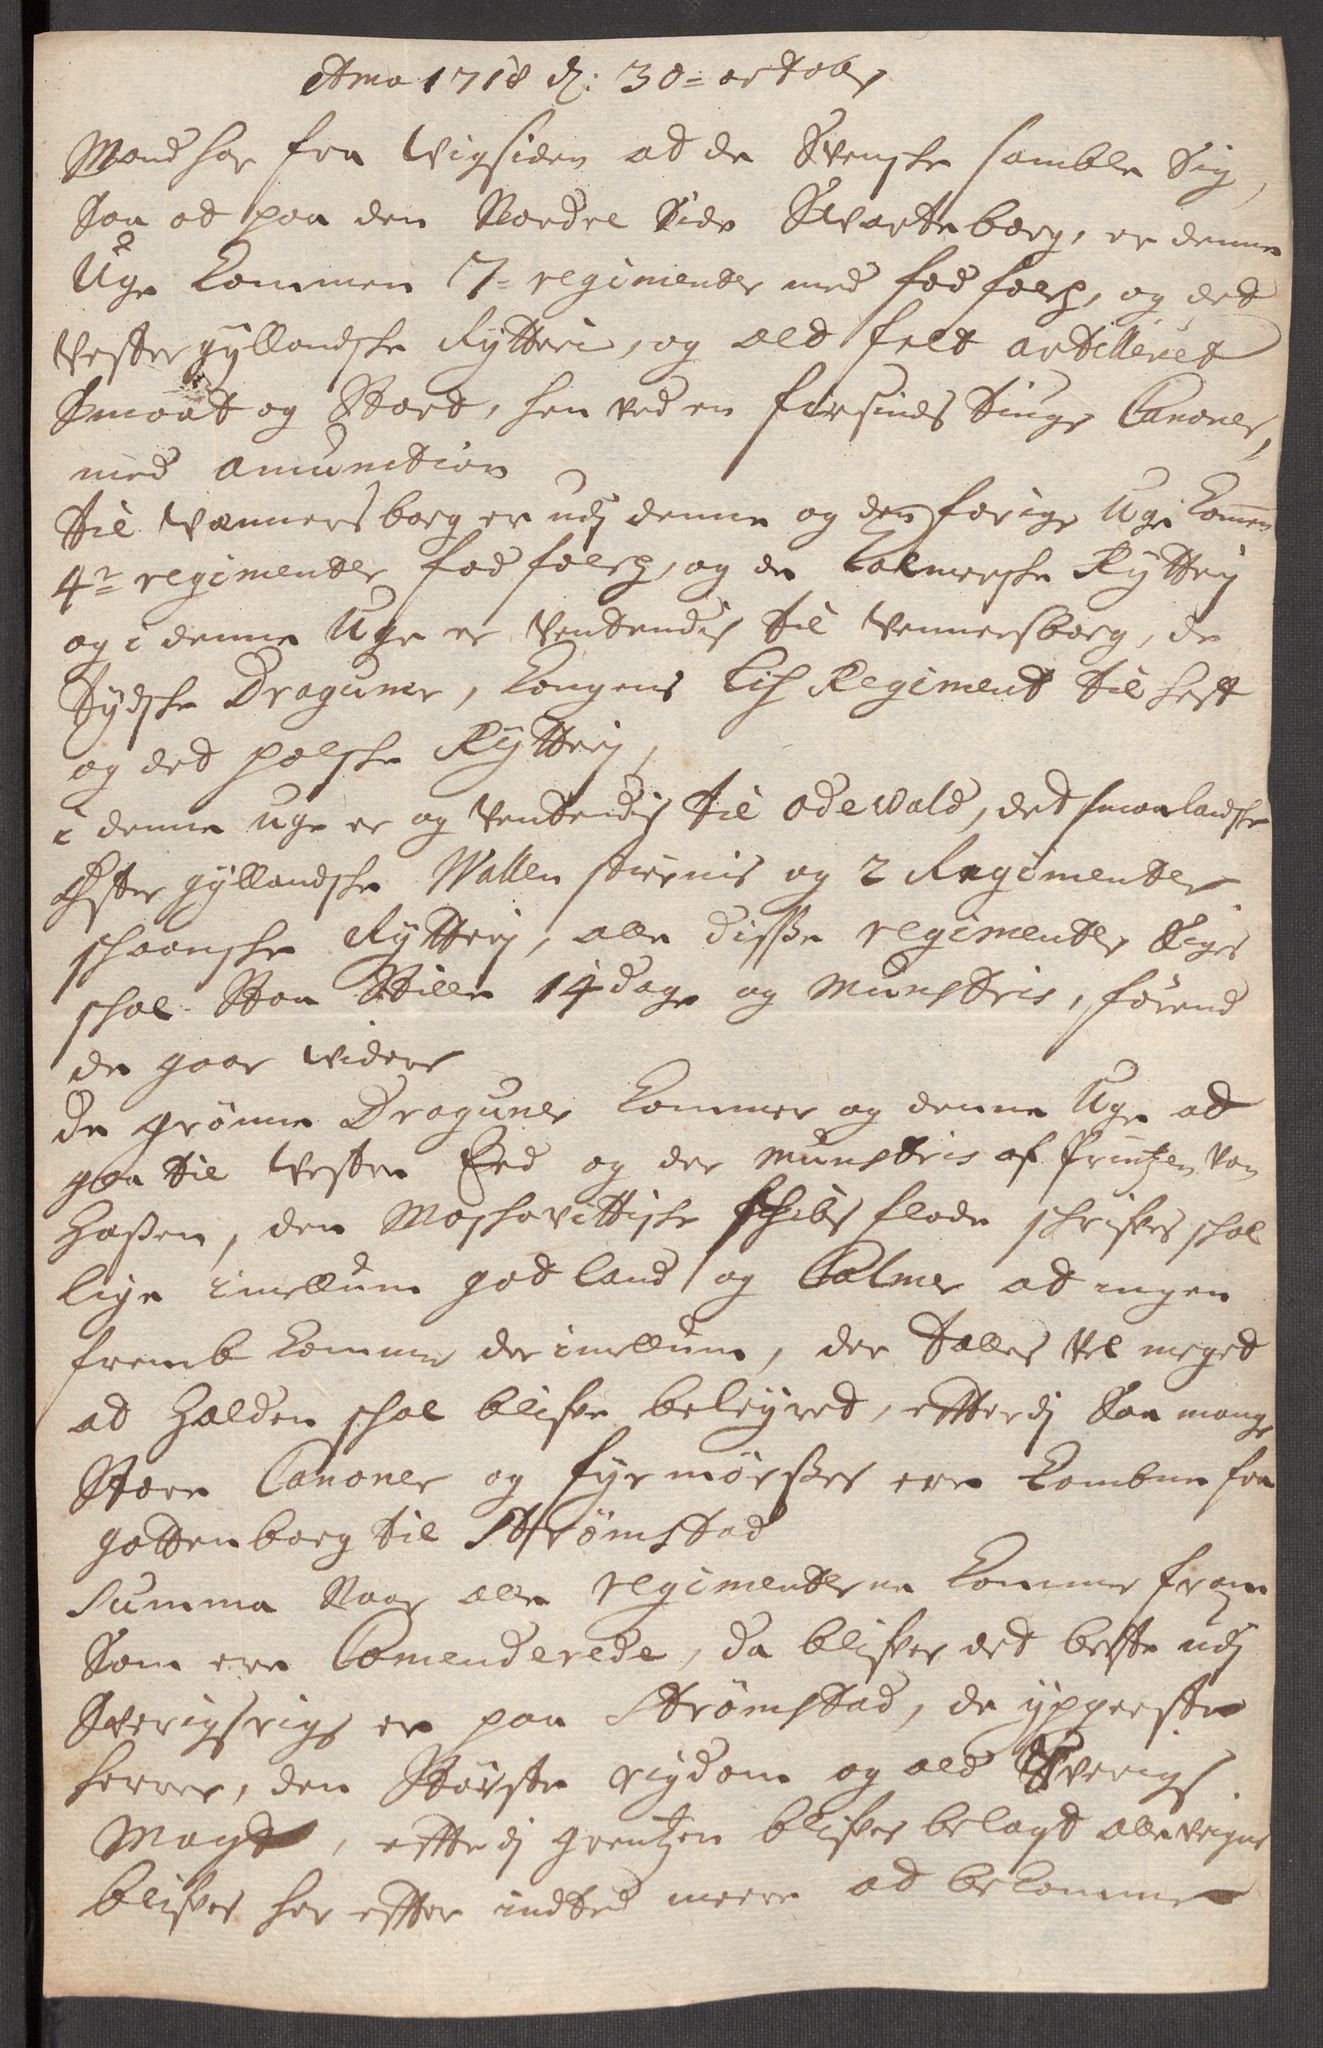 Anno 1718 d: 30= octobr
Mand har fra Wigsiden at de Svenske samble Sig,
Saa at paa den Nordre Side Svarteborg, er denne
Uge kommen 7= regimenter med fodfolch, og det
Vestergyllandske Rytteri, og ald felt artilleriet
Smaat og Stort, hen ved en firsinds tiuge Canoner,
med amunition
til Vennersborg er udj denne og den forige Uge komen
4re regimenter fodfolch, og de Calmerske Rytterj
og i denne Uge er ventendis til Vennersborg, de
Tydske Draguner, kongens Lif Regiment til hest
og det polske Rytterj,
i denne uge er og ventendis til Odevald, det smaalandske
Østergyllandske Wallenstiernis og 2 Regimenter
skaanske Rytterj, alle disse regimenter Siges
skal staa Stille 14 dage og Munstris, førend
de gaar widere
De grønne Draguner kommer og denne Uge at
gaa til Vestre Eed og der munstris af Printzen von
Hassen, den Moskovittiske skibs flode skrifves skal
lige imellum Gotland og Calmer at ingen
fremb kommer der imellum, der talles vel meget
at Halden skal blifve beleyret, efterdj Saa mange
Store Canoner og fyrmørsser ere kombne fra
Gottenborg til Strømstad
Summa Naar alle regimenterne kommer fram
Som ere Comenderede, da blifver det beste udj
Sverigsrige er paa Strømstad, de ypperste
herrer, den Største rigdom og ald Sverigs
Magt, efftedj grentzen blifver belagt alle veigne
blifver her effter indted meere at bekomme